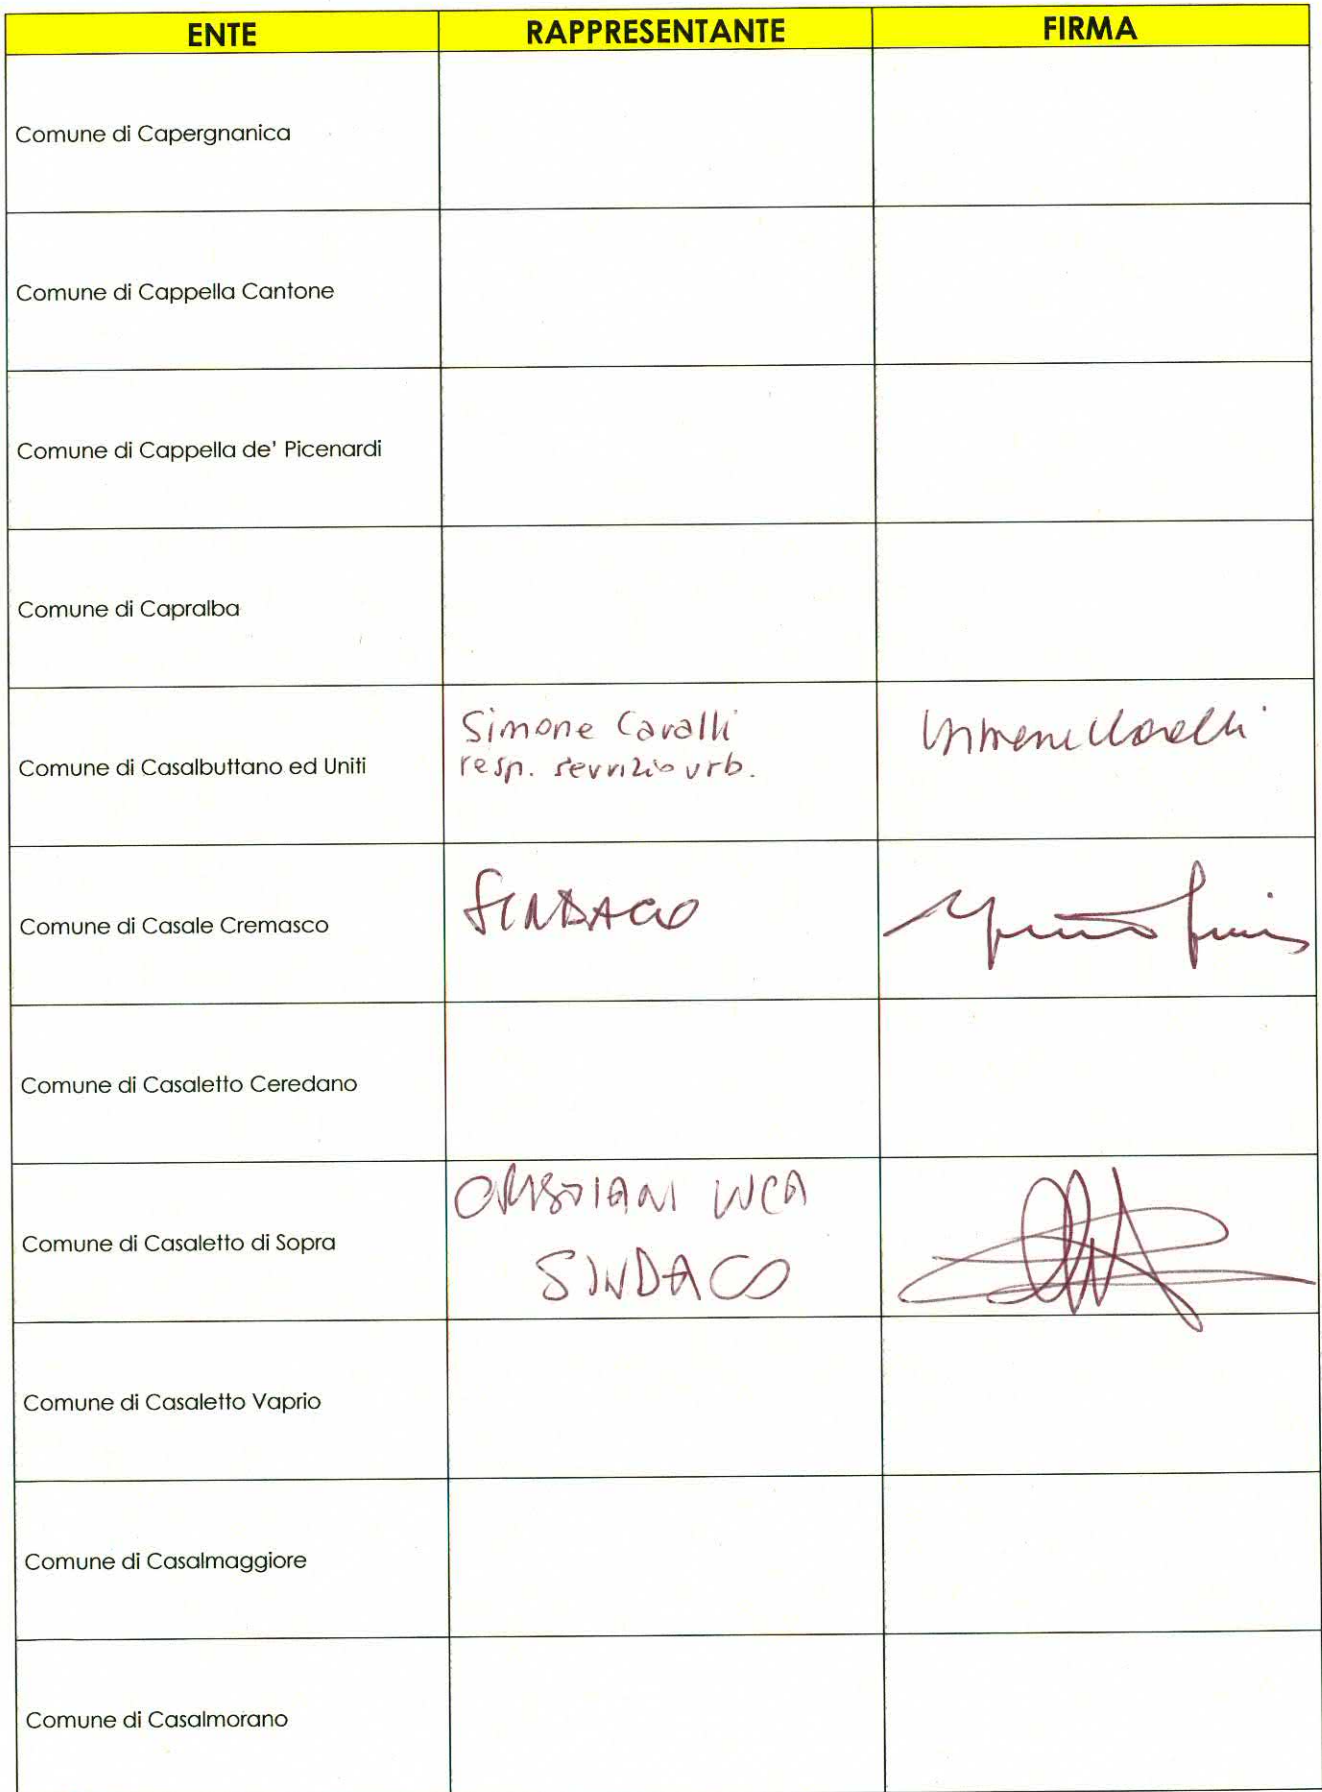 ENTE RAPPRESENTANTE FIRMA
Comune di Capergnanica
Comune di Cappella Cantone
Comune di Cappella de' Picenardi
Comune di Capralba
Simone Cavalli
resp. servizio urb.
Comune di Casalbuttano ed Uniti
Comune di Casale Cremasco SINDACO
Comune di Casaletto Ceredano
LUCA
Comune di Casaletto di Sopra
SINDACO
Comune di Casaletto Vaprio
Comune di Casalmaggiore
Comune di Casalmorano